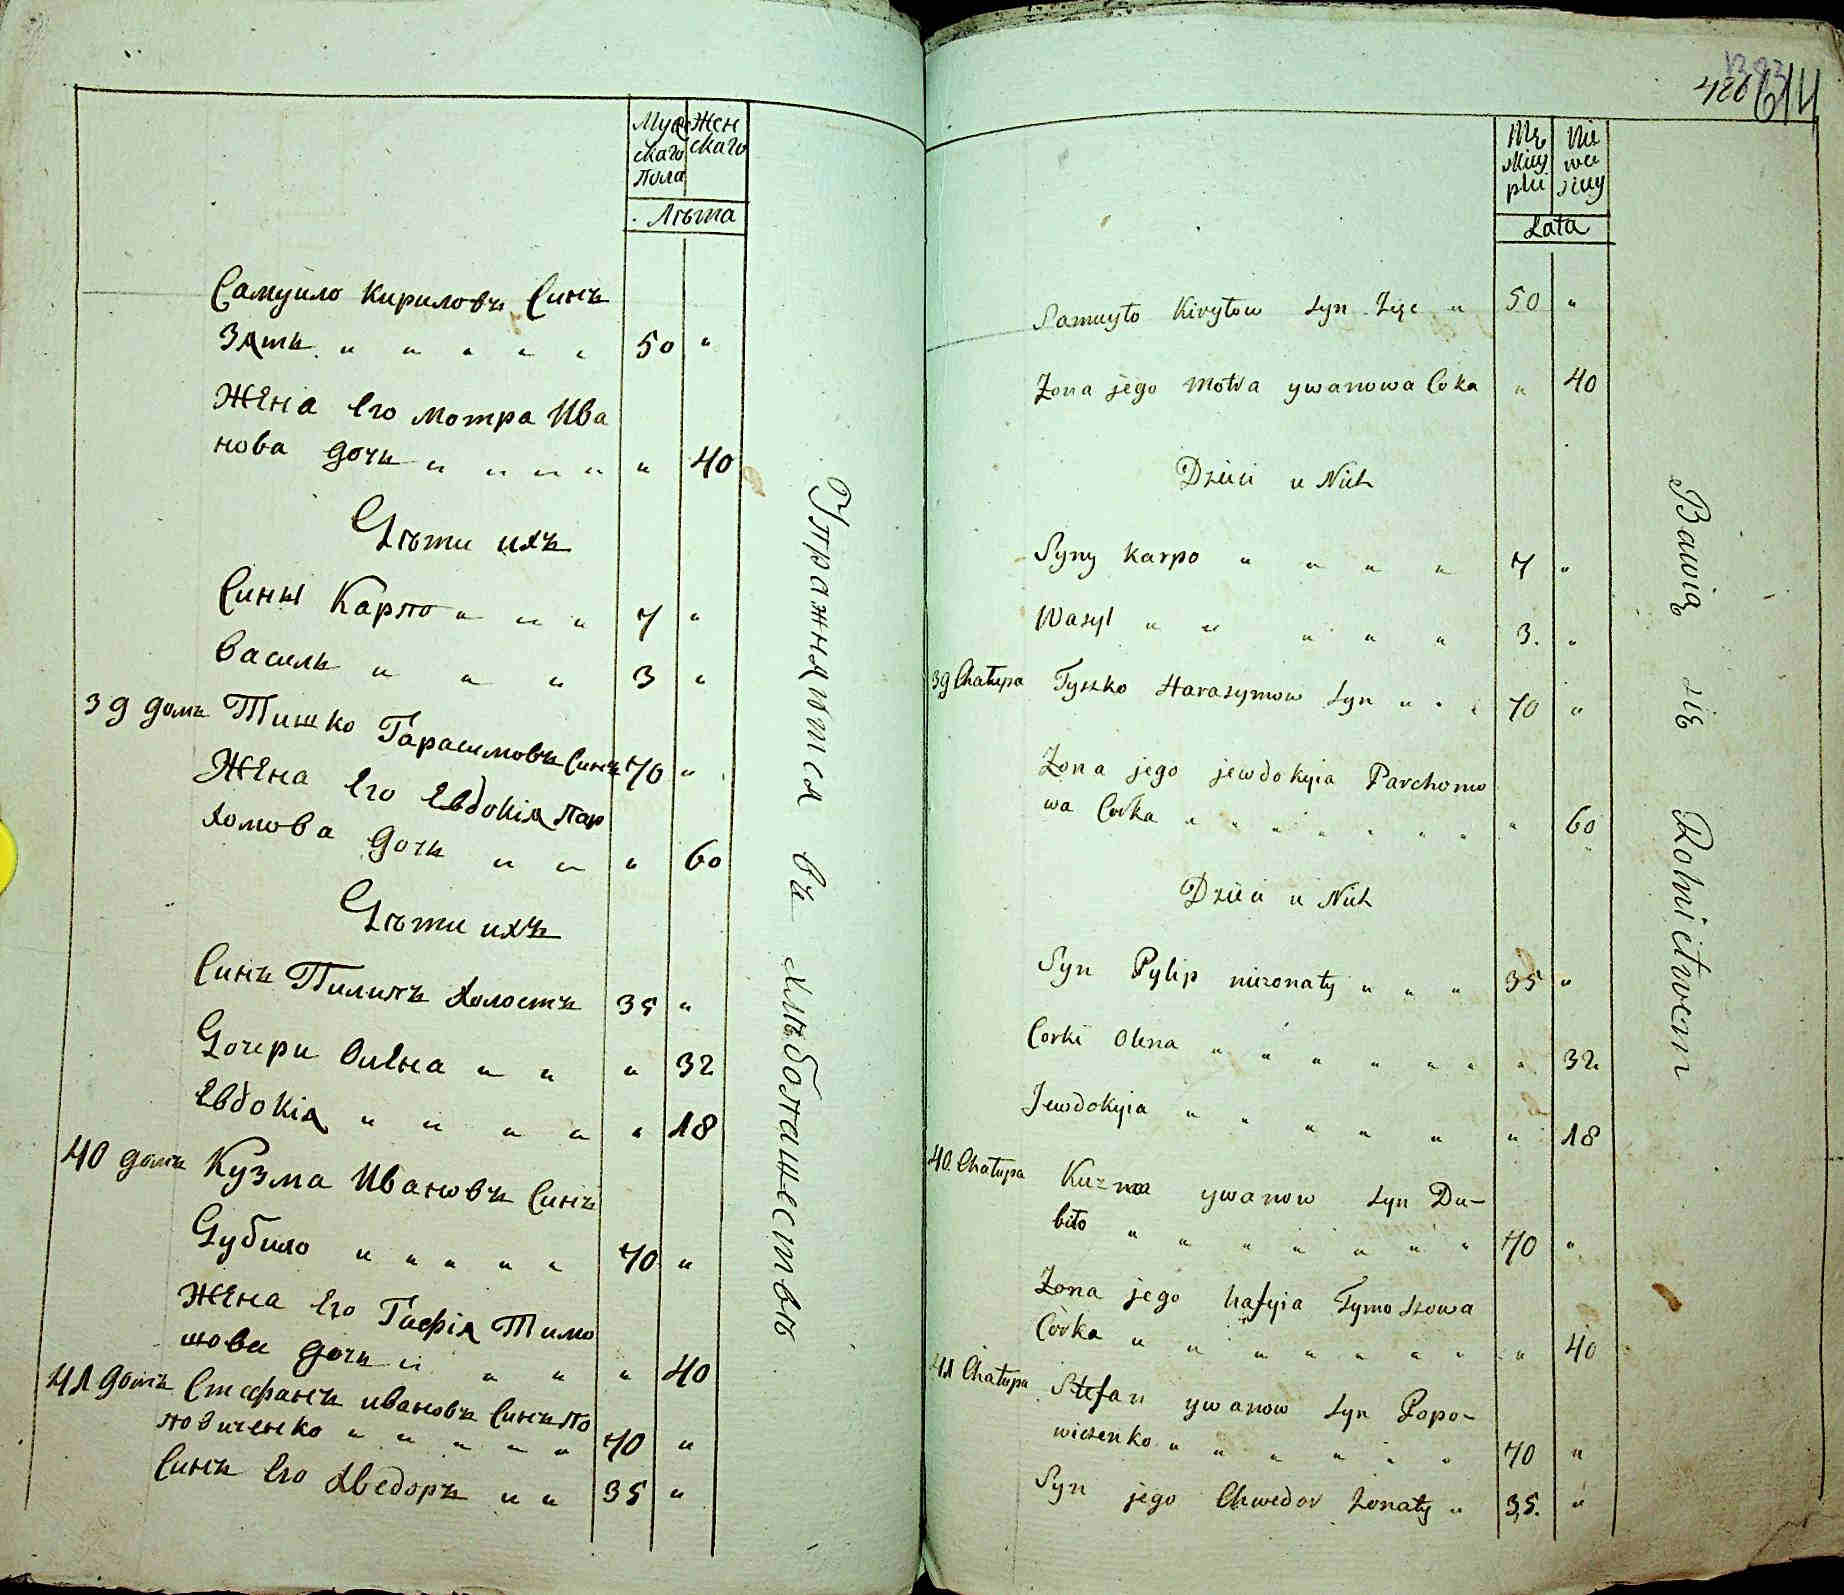 Мужескаго пола
Женскаго
Лѣта
Самуило Кириловъ Синъ
Зять " " " " " 50 "
Жена Его Мотра Ива
нова дочь " " " " " 40
Дѣти ихъ
Сины Карпо " " " 7 "
Василь " " " 3 "
39 домъ Тишко Гарасимовъ Синъ 70 "
Жена Его Евдокія Пар
хомова дочь " " " 60
Дѣти ихъ
Синъ Пилипъ Холостъ 35 "
Дочери Олена " " " 32
Евдокія " " " " " 18
40 домъ Кузма Ивановъ Синъ
Дубило " " " " " 70 "
Жена Его Гафія Тимо
шова дочь " " " " 40
41 домъ Стефанъ Ивановъ Синъ По
повиченко " " " " " 70 "
Синъ Его Хведоръ " " 35 "
Упражняются въ хлѣбопашествѣ
Męskiey płci
Niewiesciey
Lata
Samuyło Kiryłow Syn Zięc " 50 "
Zona jego Motra ywanowa Corka " 40
Dzieci u Nich
Syny Karpo " " " " 7 "
Wasyl " " " " " 3. "
39 Chałupa Tyszko Harasymow Syn " " " 70 "
Zona jego jewdokyia Parchomo
wa Corka " " " " " " " " 60
Dzieci u Nich
Syn Pylip niezonaty " " " 35 "
Corki Olena " " " " " " " 32
Jewdokyia " " " " " " 18
40 Chałupa Kuzma ywanow Syn Du-
biło " " " " " " " 70 "
Zona jego hafyia Tymoszowa
Córka " " " " " " " " 40
41 Chałupa Stefan ywanow Syn Popo-
wiczenko " " " " " " 70 "
Syn jego Chwedor Zonaty " 35. "
Bawią się Rolnictwem